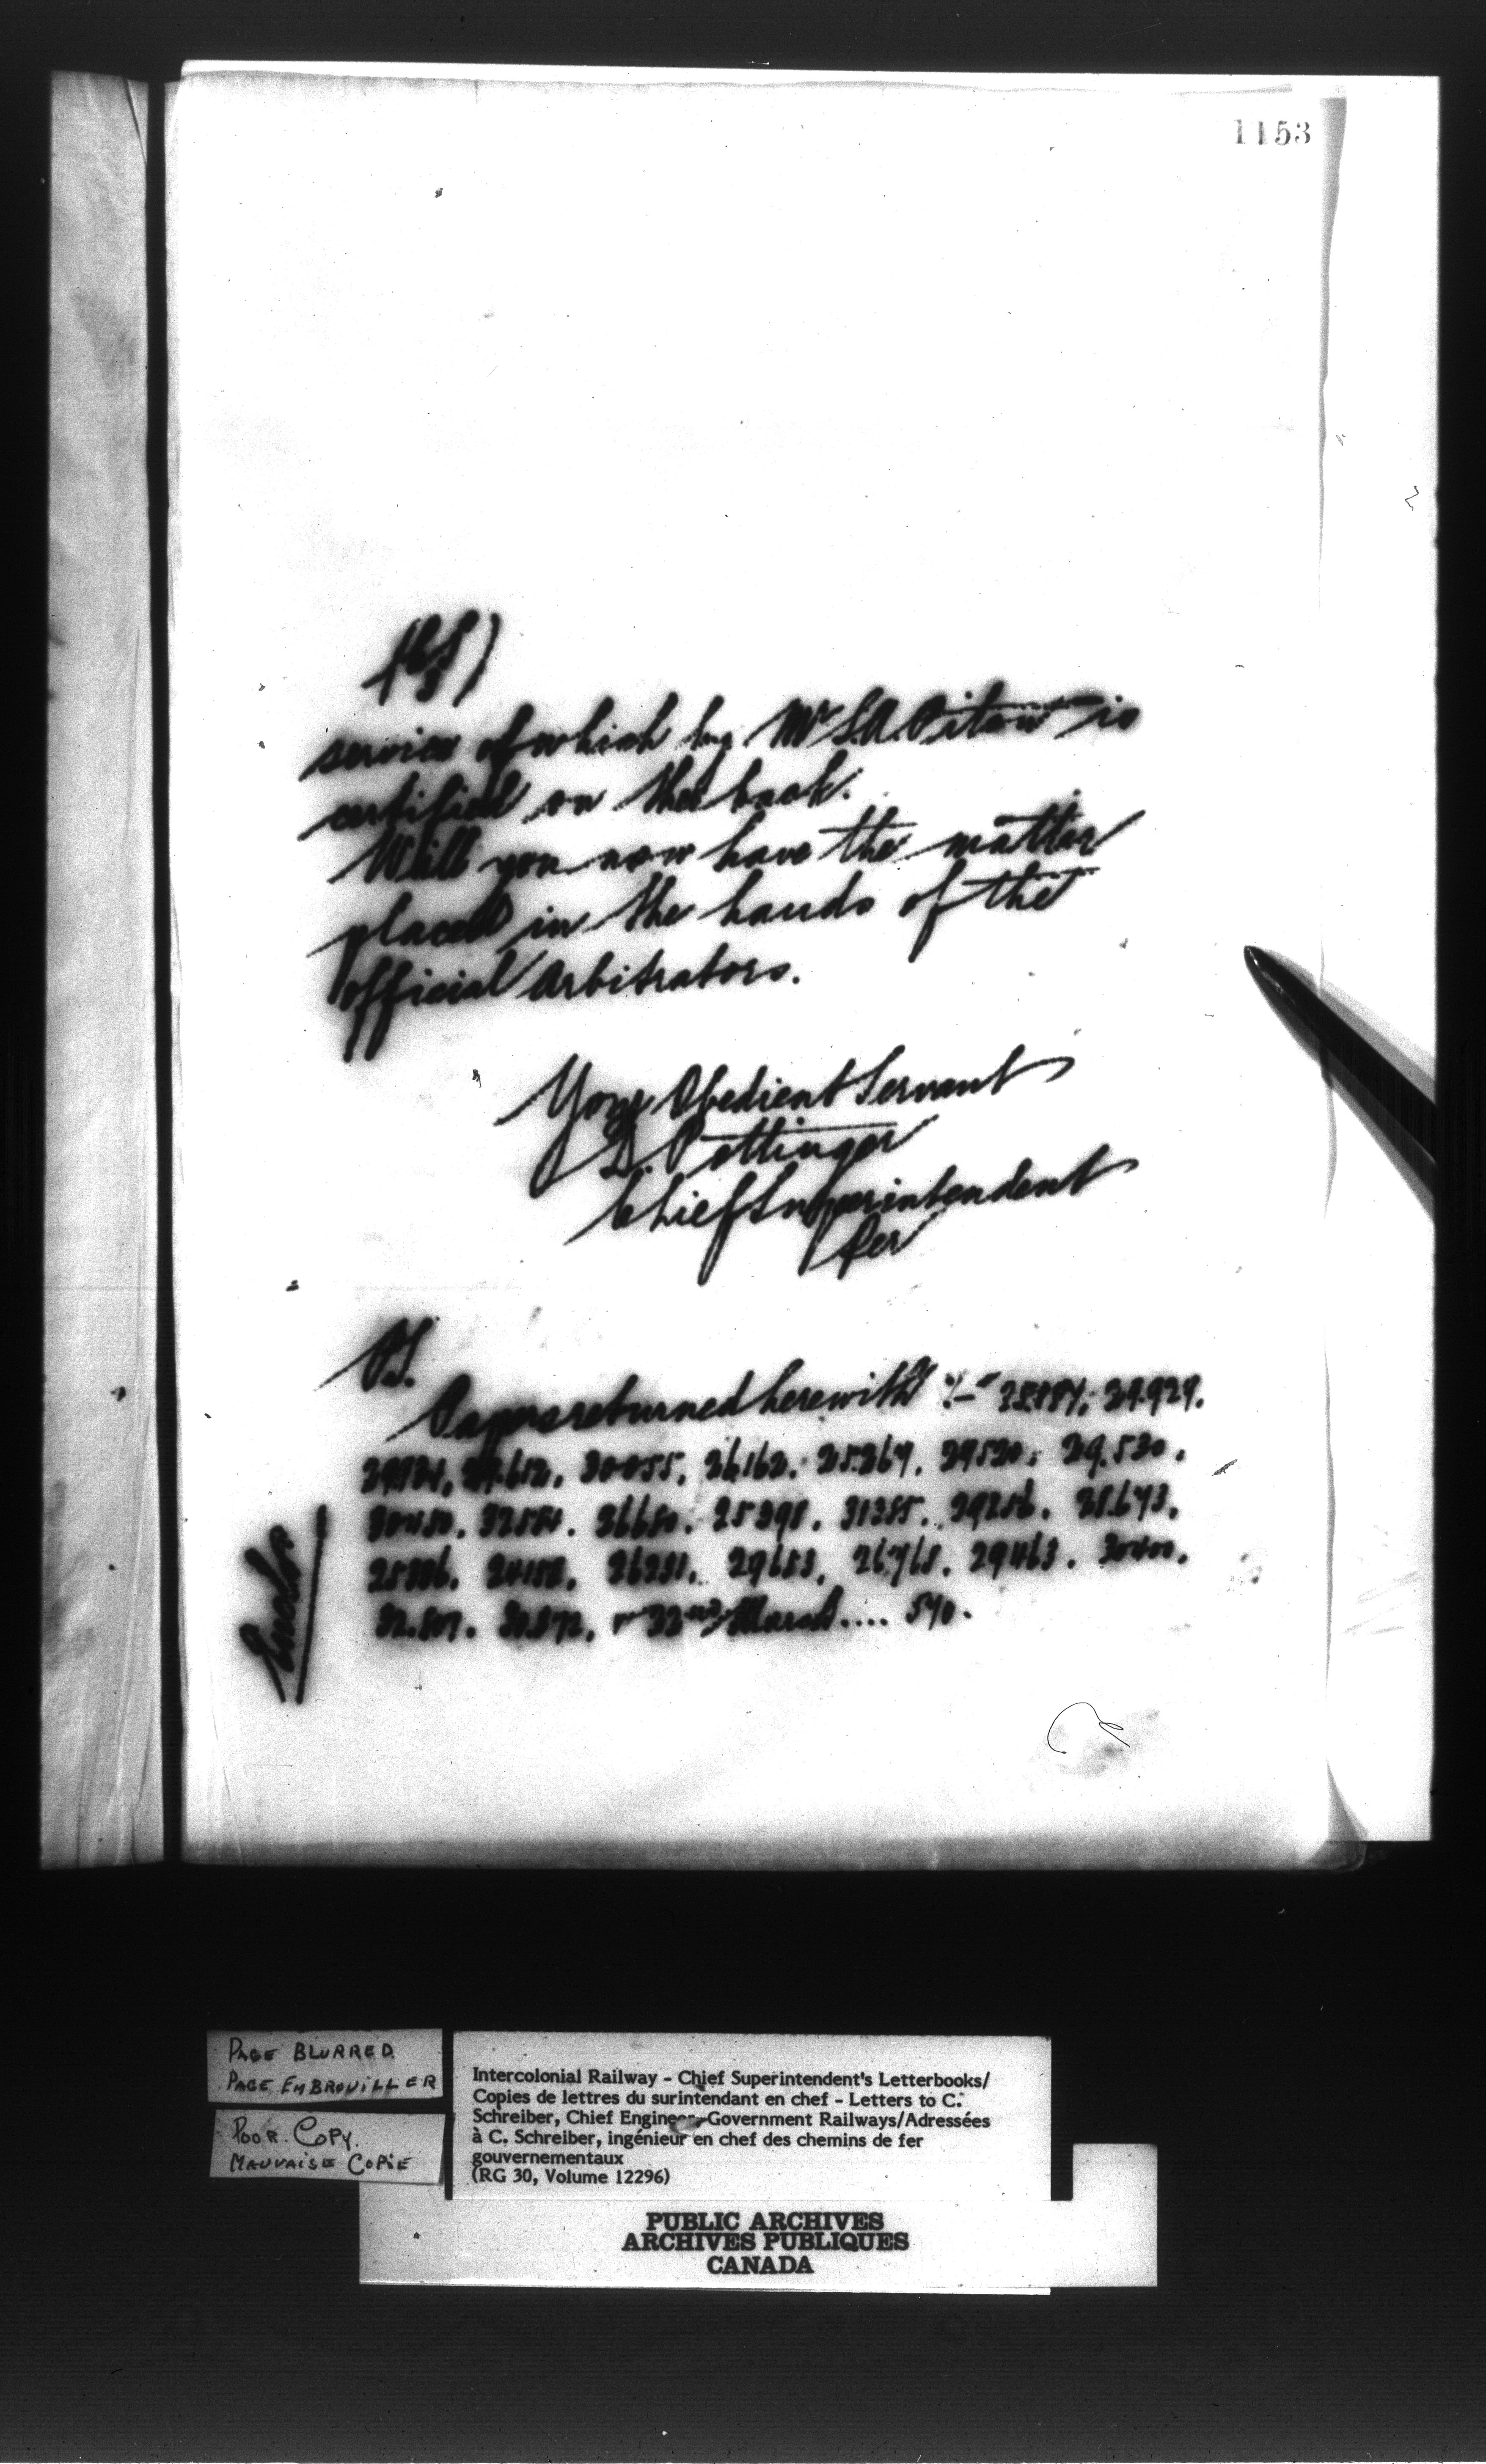 1153
service of which by Mr S.A. is
certified on the back.
Will you now have the matter
placed in the hands of the
official Arbitrators.
Your Obedient Servant
D. Pottinger
Chief Superintendent
Per
P.S.
Papers returned herewith :- 29.929.
30055. 26162. 25.267. 29520. 29.530.
25398. 31385. 29256. 28.673.
26231. 29653. 26.768. 29463. 30400.
540.
Encls
PAGE BLURRED
PAGE EMBROUILLER
POOR. COPY.
MAUVAISE COPIE
Intercolonial Railway - Chief Superintendent's Letterbooks/
Copies de lettres du surintendant en chef - Letters to C.
Schreiber, Chief Engineer-Government Railways/Adressées
à C. Schreiber, ingénieur en chef des chemins de fer
gouvernementaux
(RG 30, Volume 12296)
PUBLIC ARCHIVES
ARCHIVES PUBLIQUES
CANADA